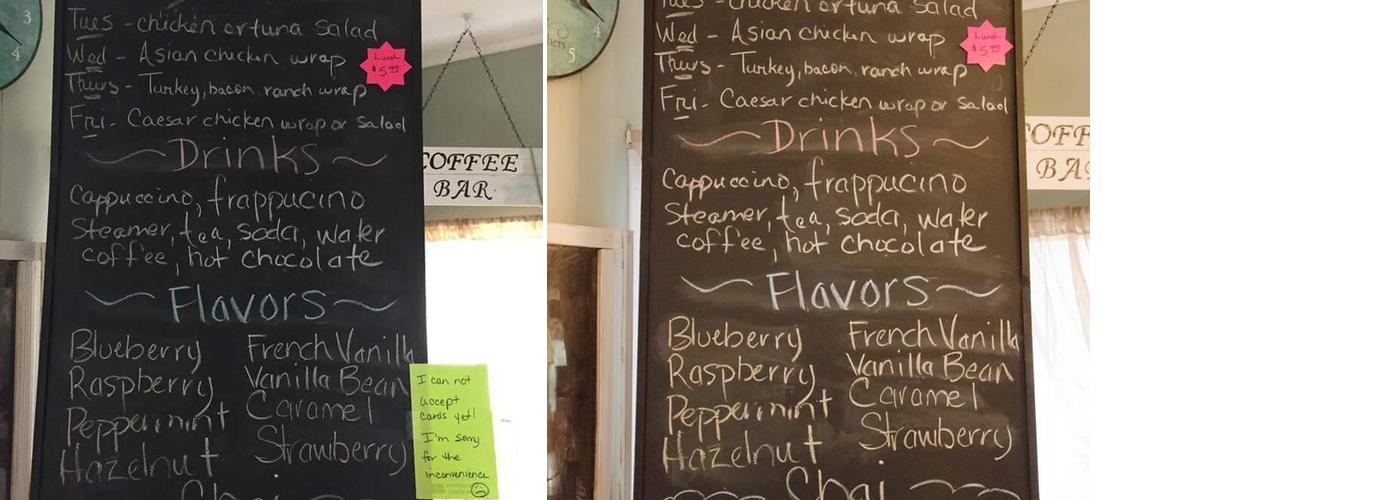 3
4
Tues - chicken or tuna Salad
Wed - Asian chicken wrap
Thurs - Turkey, bacon, ranch wrap
Fri - Caesar chicken wrap or Salad
Lunch
$5.99
Drinks
Cappuccino, frappucino
Steamer, tea, soda, water
coffee, hot chocolate
Flavors
Blueberry French Vanilla
Raspberry Vanilla Bean
Peppermint Caramel
Hazelnut Strawberry
Chai
COFFEE
BAR
I can not
accept
cards yet!
I'm sorry
for the
inconvenience
4
5
Tues - chicken or tuna Salad
Wed - Asian chicken wrap
Thurs - Turkey, bacon, ranch wrap
Fri - Caesar chicken wrap or Salad
Lunch
$5.99
Drinks
Cappuccino, frappucino
Steamer, tea, soda, water
coffee, hot chocolate
Flavors
Blueberry French Vanilla
Raspberry Vanilla Bean
Peppermint Caramel
Hazelnut Strawberry
Chai
COFF
BA